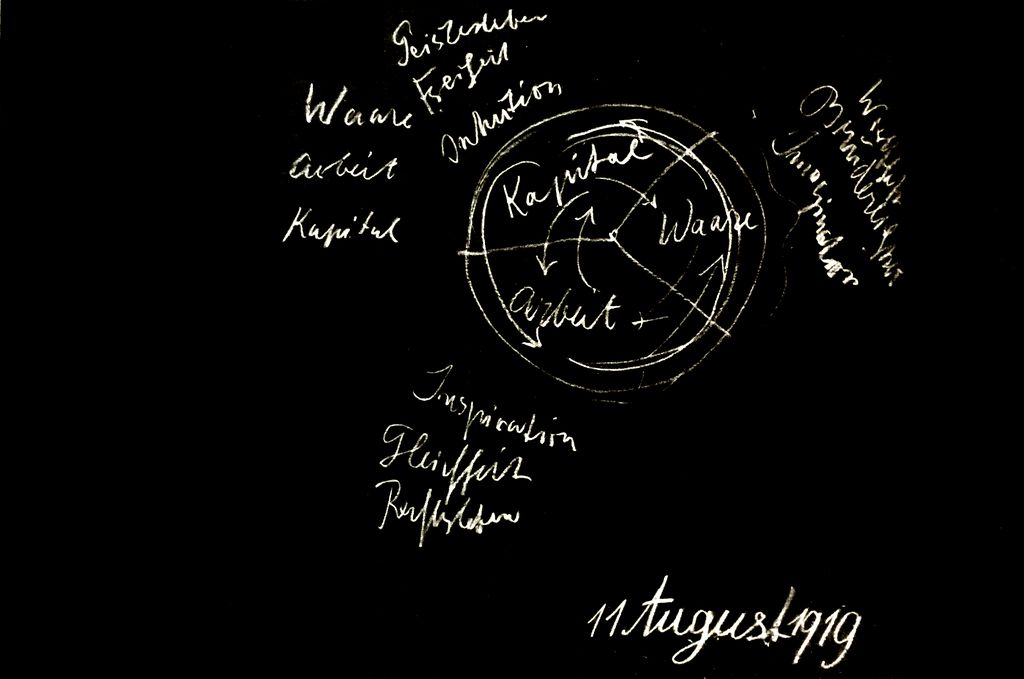 Geistesleben
Freiheit
Intuition
Waare
Arbeit
Kapital
Kapital
Waare
Arbeit +
Brüderlichkeit
Imagination
Inspiration
Gleichheit
Rechtsleben
11 August 1919